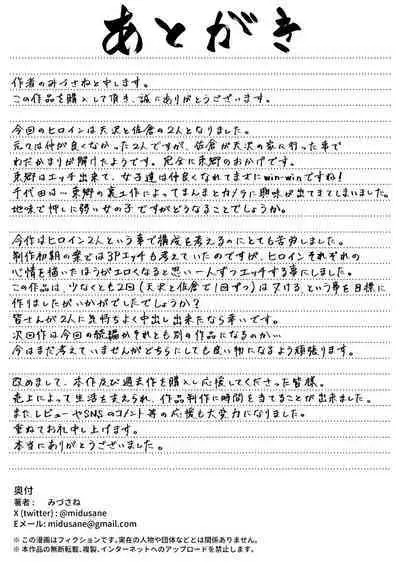 あとがき
作者のみづさねと申します。
この作品を購入して頂き、誠にありがとうございます。
今回のヒロインは天沢と佐倉の2人となりました。
元々は仲が良くなかった2人ですが、佐倉が天沢の家に行った事で
わだかまりが解けたようです。完全に東郷のおかげです。
東郷はエッチ出来て、女子達は仲良くなれてまさにwin-winですね!
千代田は…東郷の裏工作によってまんまとカノラに興味が出てきてしまいました。
地味で押しに弱い女の子ですがどうなることでしょうか。
今作はヒロイン2人という事で構成を考えるのにとても苦労しました。
制作初期の案では3Pエッチも考えていたのですが、ヒロインそれぞれの
心情を描いたほうがエロくなると思い一人ずつエッチする事にしました。
この作品は、少なくとも2回(天沢と佐倉で1回ずつ)はヌける という事を目標に
作りましたがいかがでしたでしょうか?
皆さんが2人に気持ちよく中出し出来たなら幸いです。
次回作は今回の続編かそれとも別の作品になるのか…
今はまだ考えていませんがどちらにしても良い物になるよう頑張ります。
改めまして、本作及び過去作を購入し応援してくださった皆様。
売上によって生活を支えられ、作品制作に時間を当てることが出来ました。
またレビューやSNSのコメント等の応援も大変力になりました。
重ねてお礼申し上げます。
本当にありがとうございました。
奥付
著者: みづさね
X (twitter) : @midusane
Eメール: midusane@gmail.com
※この漫画はフィクションです。実在の人物や団体などとは関係ありません。
※本作品の無断転載、複製、インターネットへのアップロードを禁止します。